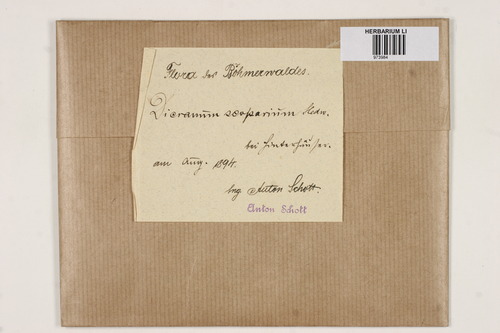 HERBARIUM LI
973984
Flora des Böhmerwaldes.
Dicranum scoparium Hedw.
bei Hinterhäuser.
am Aug. 1894.
leg. Anton Schott.
Anton Schott